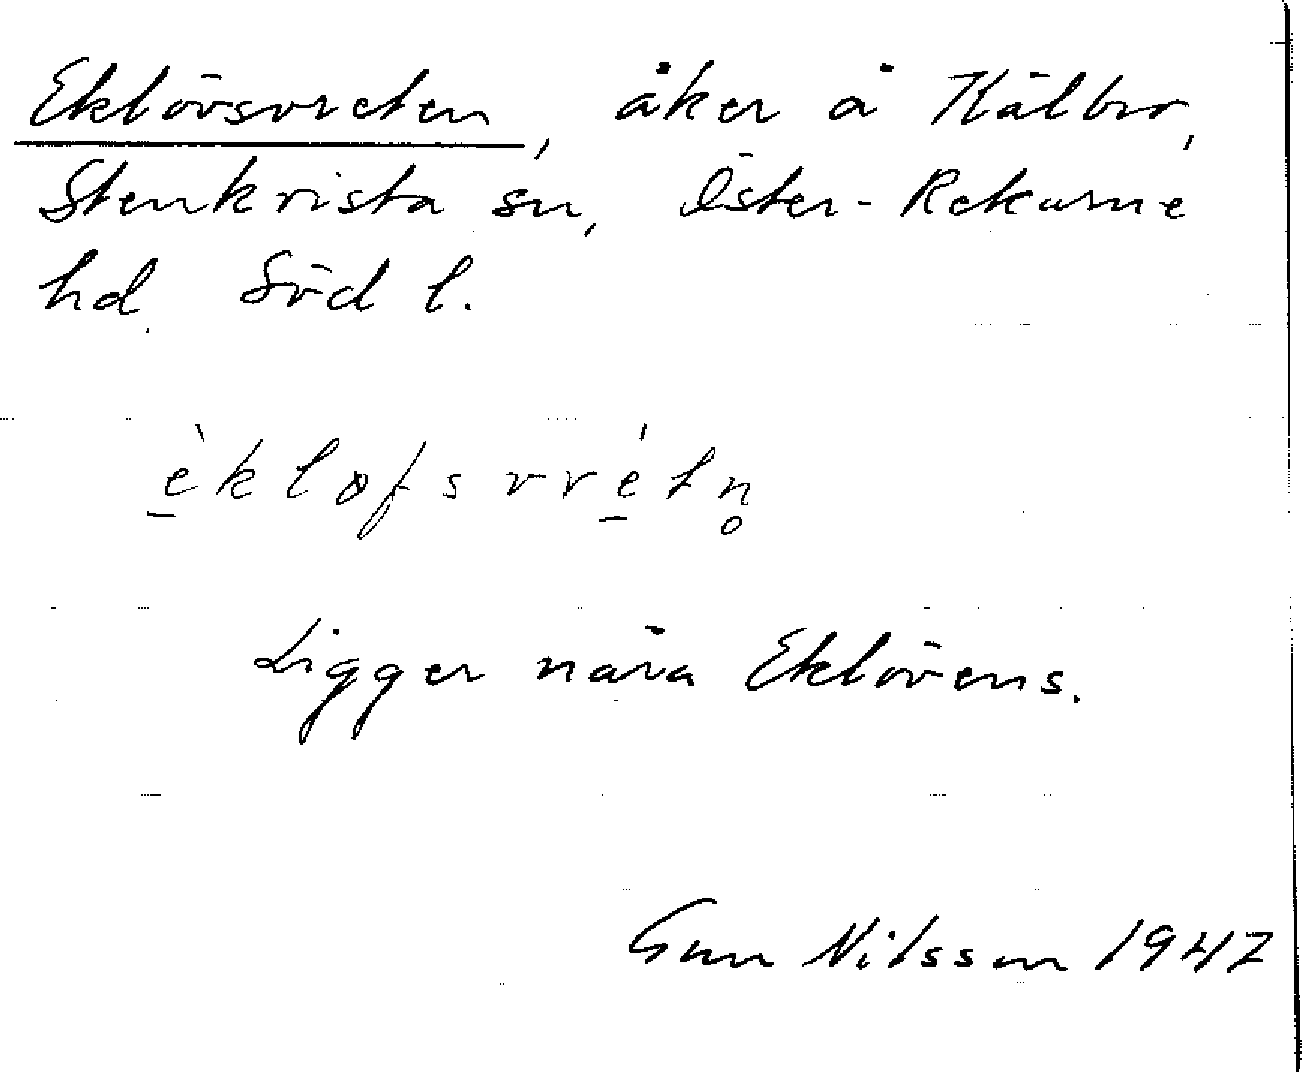 Eklövsvreten, åker å Kälbro,
Stenkvista sn, Öster-Rekarne
hd. Söd l.
è̱kløfsvré̱tn̥
Ligger nära Eklövens.
Gun Nilsson 1947